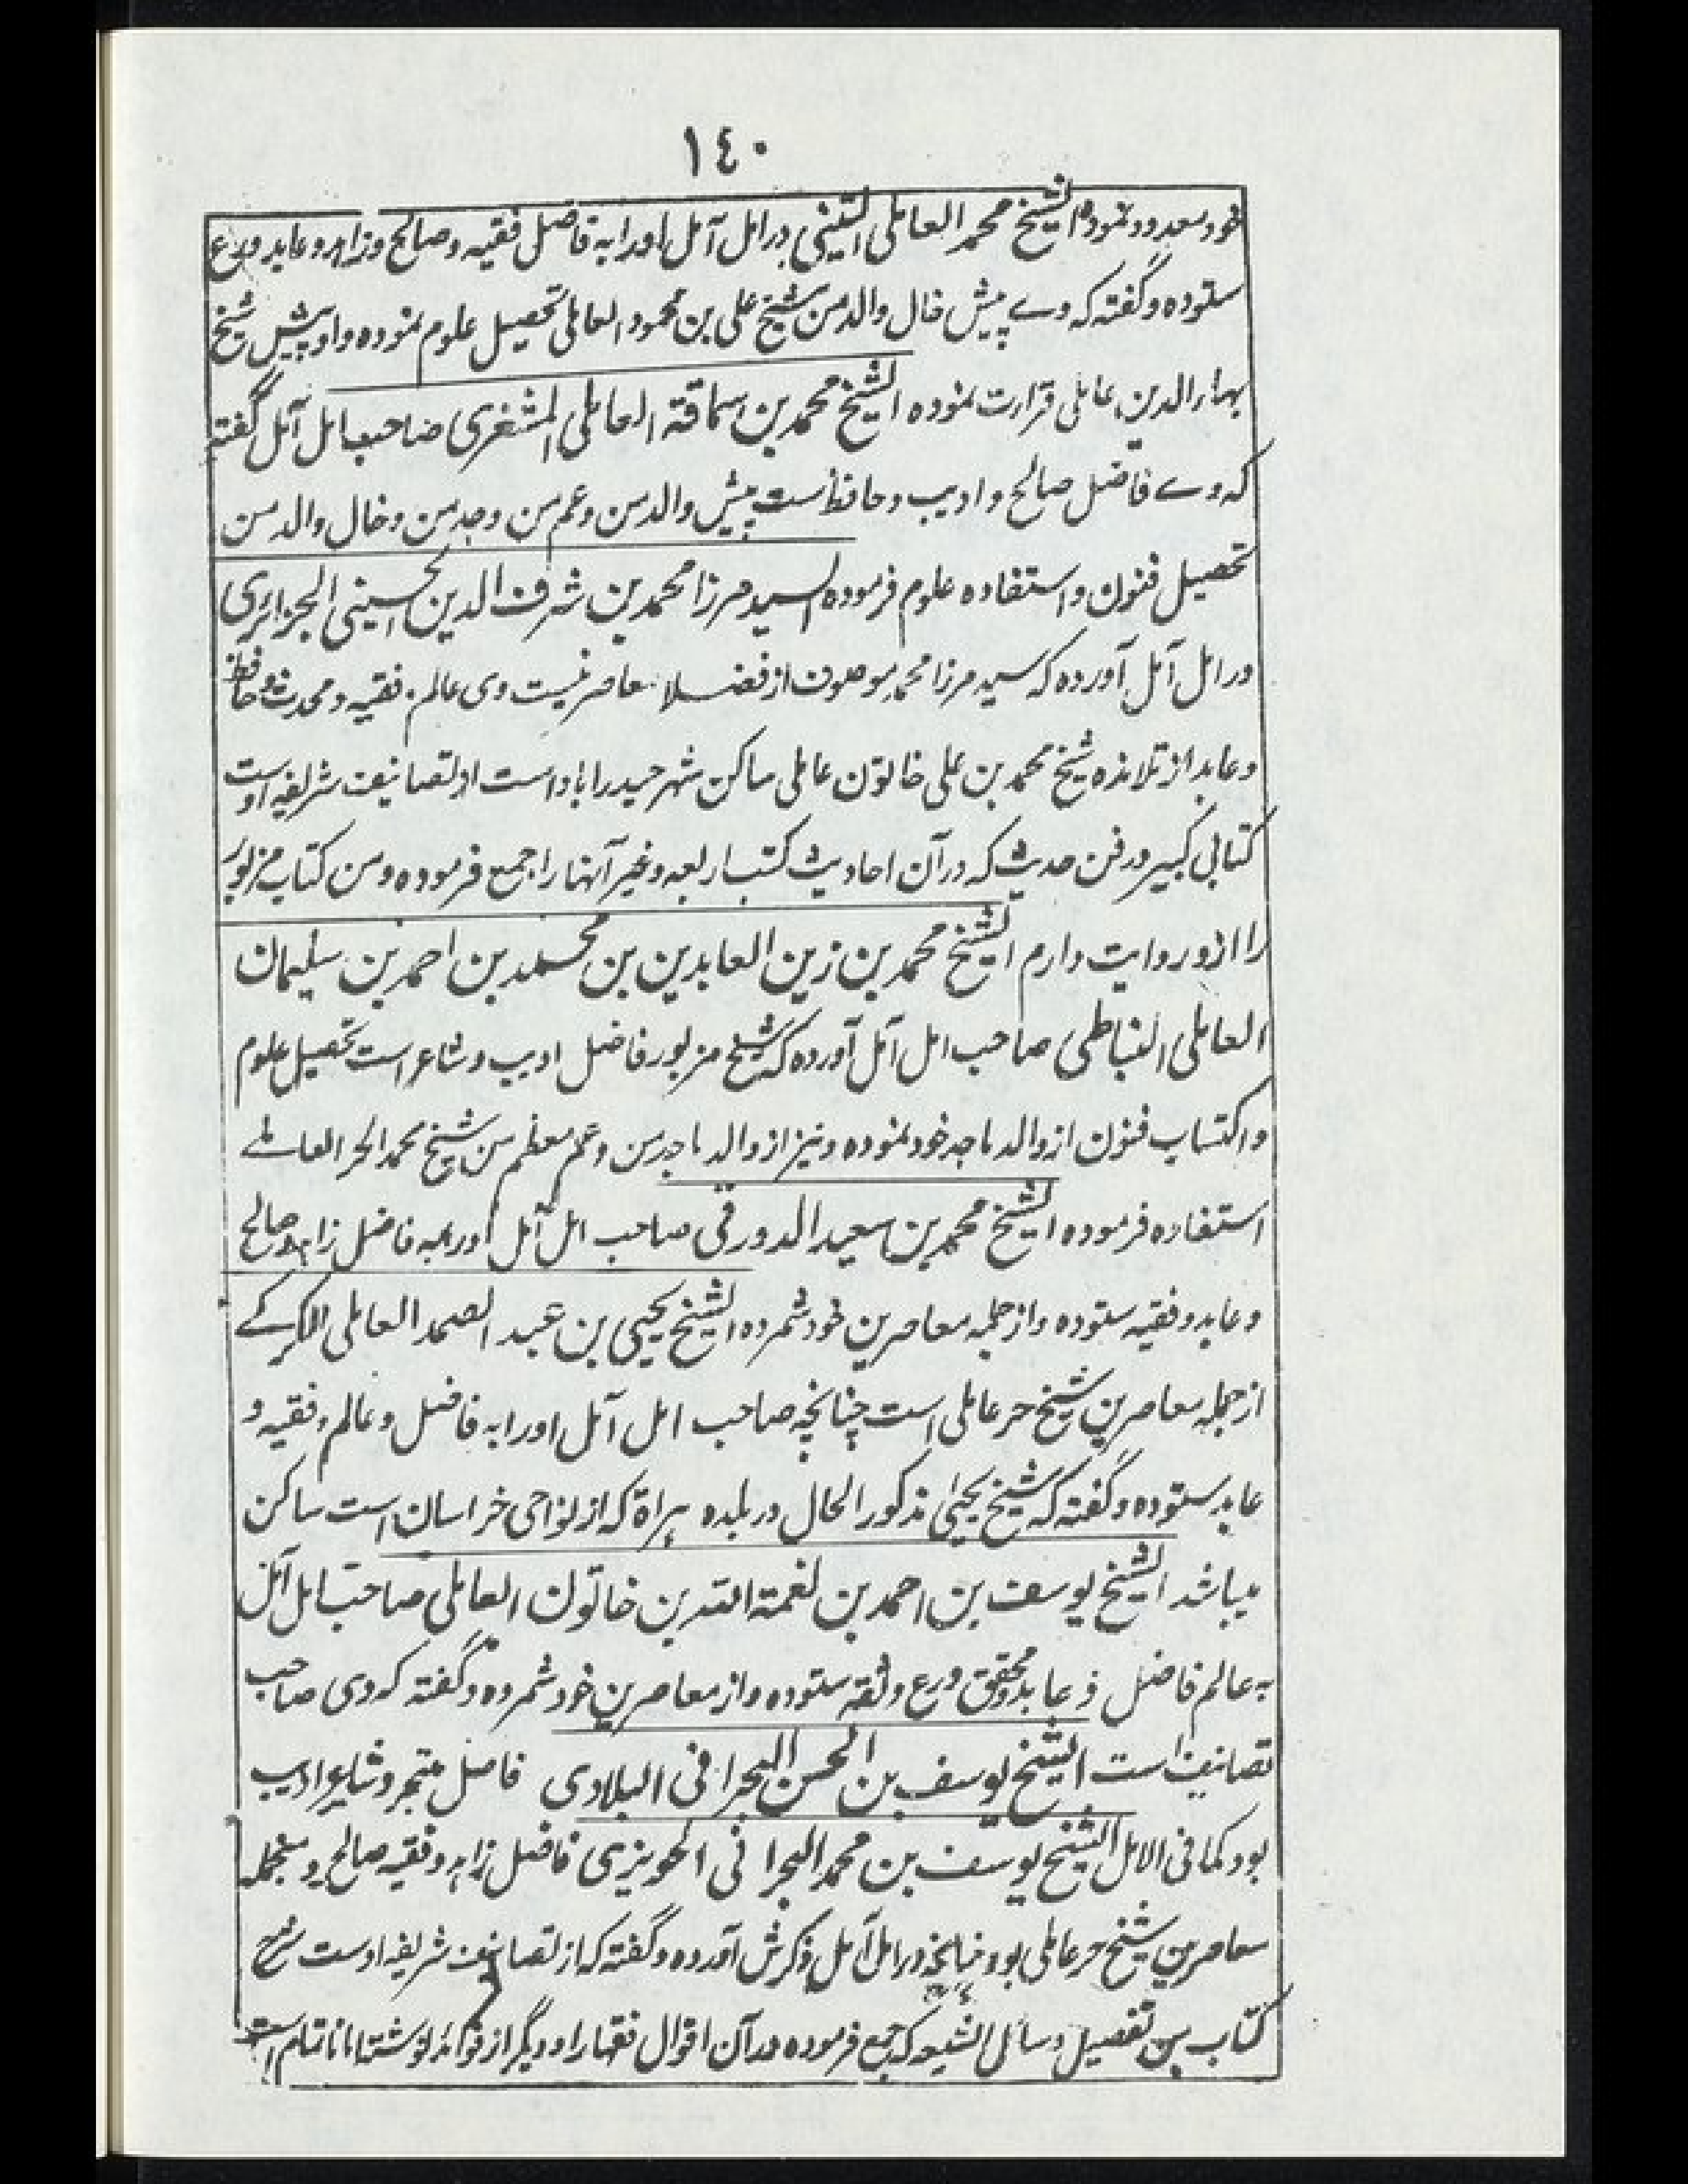 ١٤٠
خود معدود نموده الشيخ محمد العاملى التبنينى در امل آمل اورا به فاضل فقيه وصالح وزاهد وعابد وورع
ستوده وگفته كه وے پيش خال والد من شيخ على بن محمود العاملى تحصيل علوم نموده واو پيش شيخ
بهاء الدين عاملى قرارت نموده الشيخ محمد بن سماقة العاملى المشغرى صاحب امل آمل گفته
كه وے فاضل صالح و اديب وحافظ است پيش والد من وعم من وجد من وخال والد من
تحصيل فنون واستفاده علوم فرموده السيد مرزا محمد بن شرف الدين الحسينى الجزائرى
در امل آمل آورده كه سيد مرزا محمد موصوف از فضلاء معاصرنيست وى عالم فقيه و محدث و حافظ
وعابد از تلامذه شيخ محمد بن على خاتون عاملى ساكن شهر حيدراباد است از تصانيف شريفه اوست
كتابى كبير در فن حديث كه در آن احاديث كتب اربعه وغير آنها را جمع فرموده ومن كتاب مزبور
را ازو روايت دارم الشيخ محمد بن زين العابدين بن محمد بن احمد بن سليمان
العاملى النباطى صاحب امل آمل آورده كه شيخ مزبور فاضل اديب وشاعر است تحصيل علوم
واكتساب فنون از والد ماجد خود نموده ونيز از والد ماجد من وعم معظم من شيخ محمد الحر العاملے
استفاده فرموده الشيخ محمد بن سعيد الدورقى صاحب امل آمل اورا به فاضل زاهد وصالح
وعابد وفقيه ستوده واز جمله معاصرين خود شمرده الشيخ يحيى بن عبد الصمد العاملى الكركے
از جمله معاصرين شيخ حر عاملى است چنانچه صاحب امل آمل اورا به فاضل وعالم وفقيه و
عابد ستوده وگفته كه شيخ يحيى مذكور الحال در بلده هراة كه از نواحى خراسان است ساكن
ميباشد الشيخ يوسف بن احمد بن نعمة الله بن خاتون العاملى صاحب امل آمل
به عالم فاضل و عابد ومحقق ورع وثقه ستوده واز معاصرين خود شمرده وگفته كه وى صاحب
تصانيف است الشيخ يوسف بن الحسن البحرانى البلادى فاضل متبحر وشاعر اديب
بود كما فى الامل الشيخ يوسف بن محمد البحرانى الحويزى فاضل زاهد وفقيه صالح ومنجمله
معاصرين شيخ حر عاملى بود چنانچه در امل آمل ذكرش آورده وگفته كه از تصانيف شريفه اوست شرح
كتاب من تفصيل وسائل الشيعه كه جمع فرموده در آن اقوال فقها را وديگر از فوائد نوشته اما ناتمام است